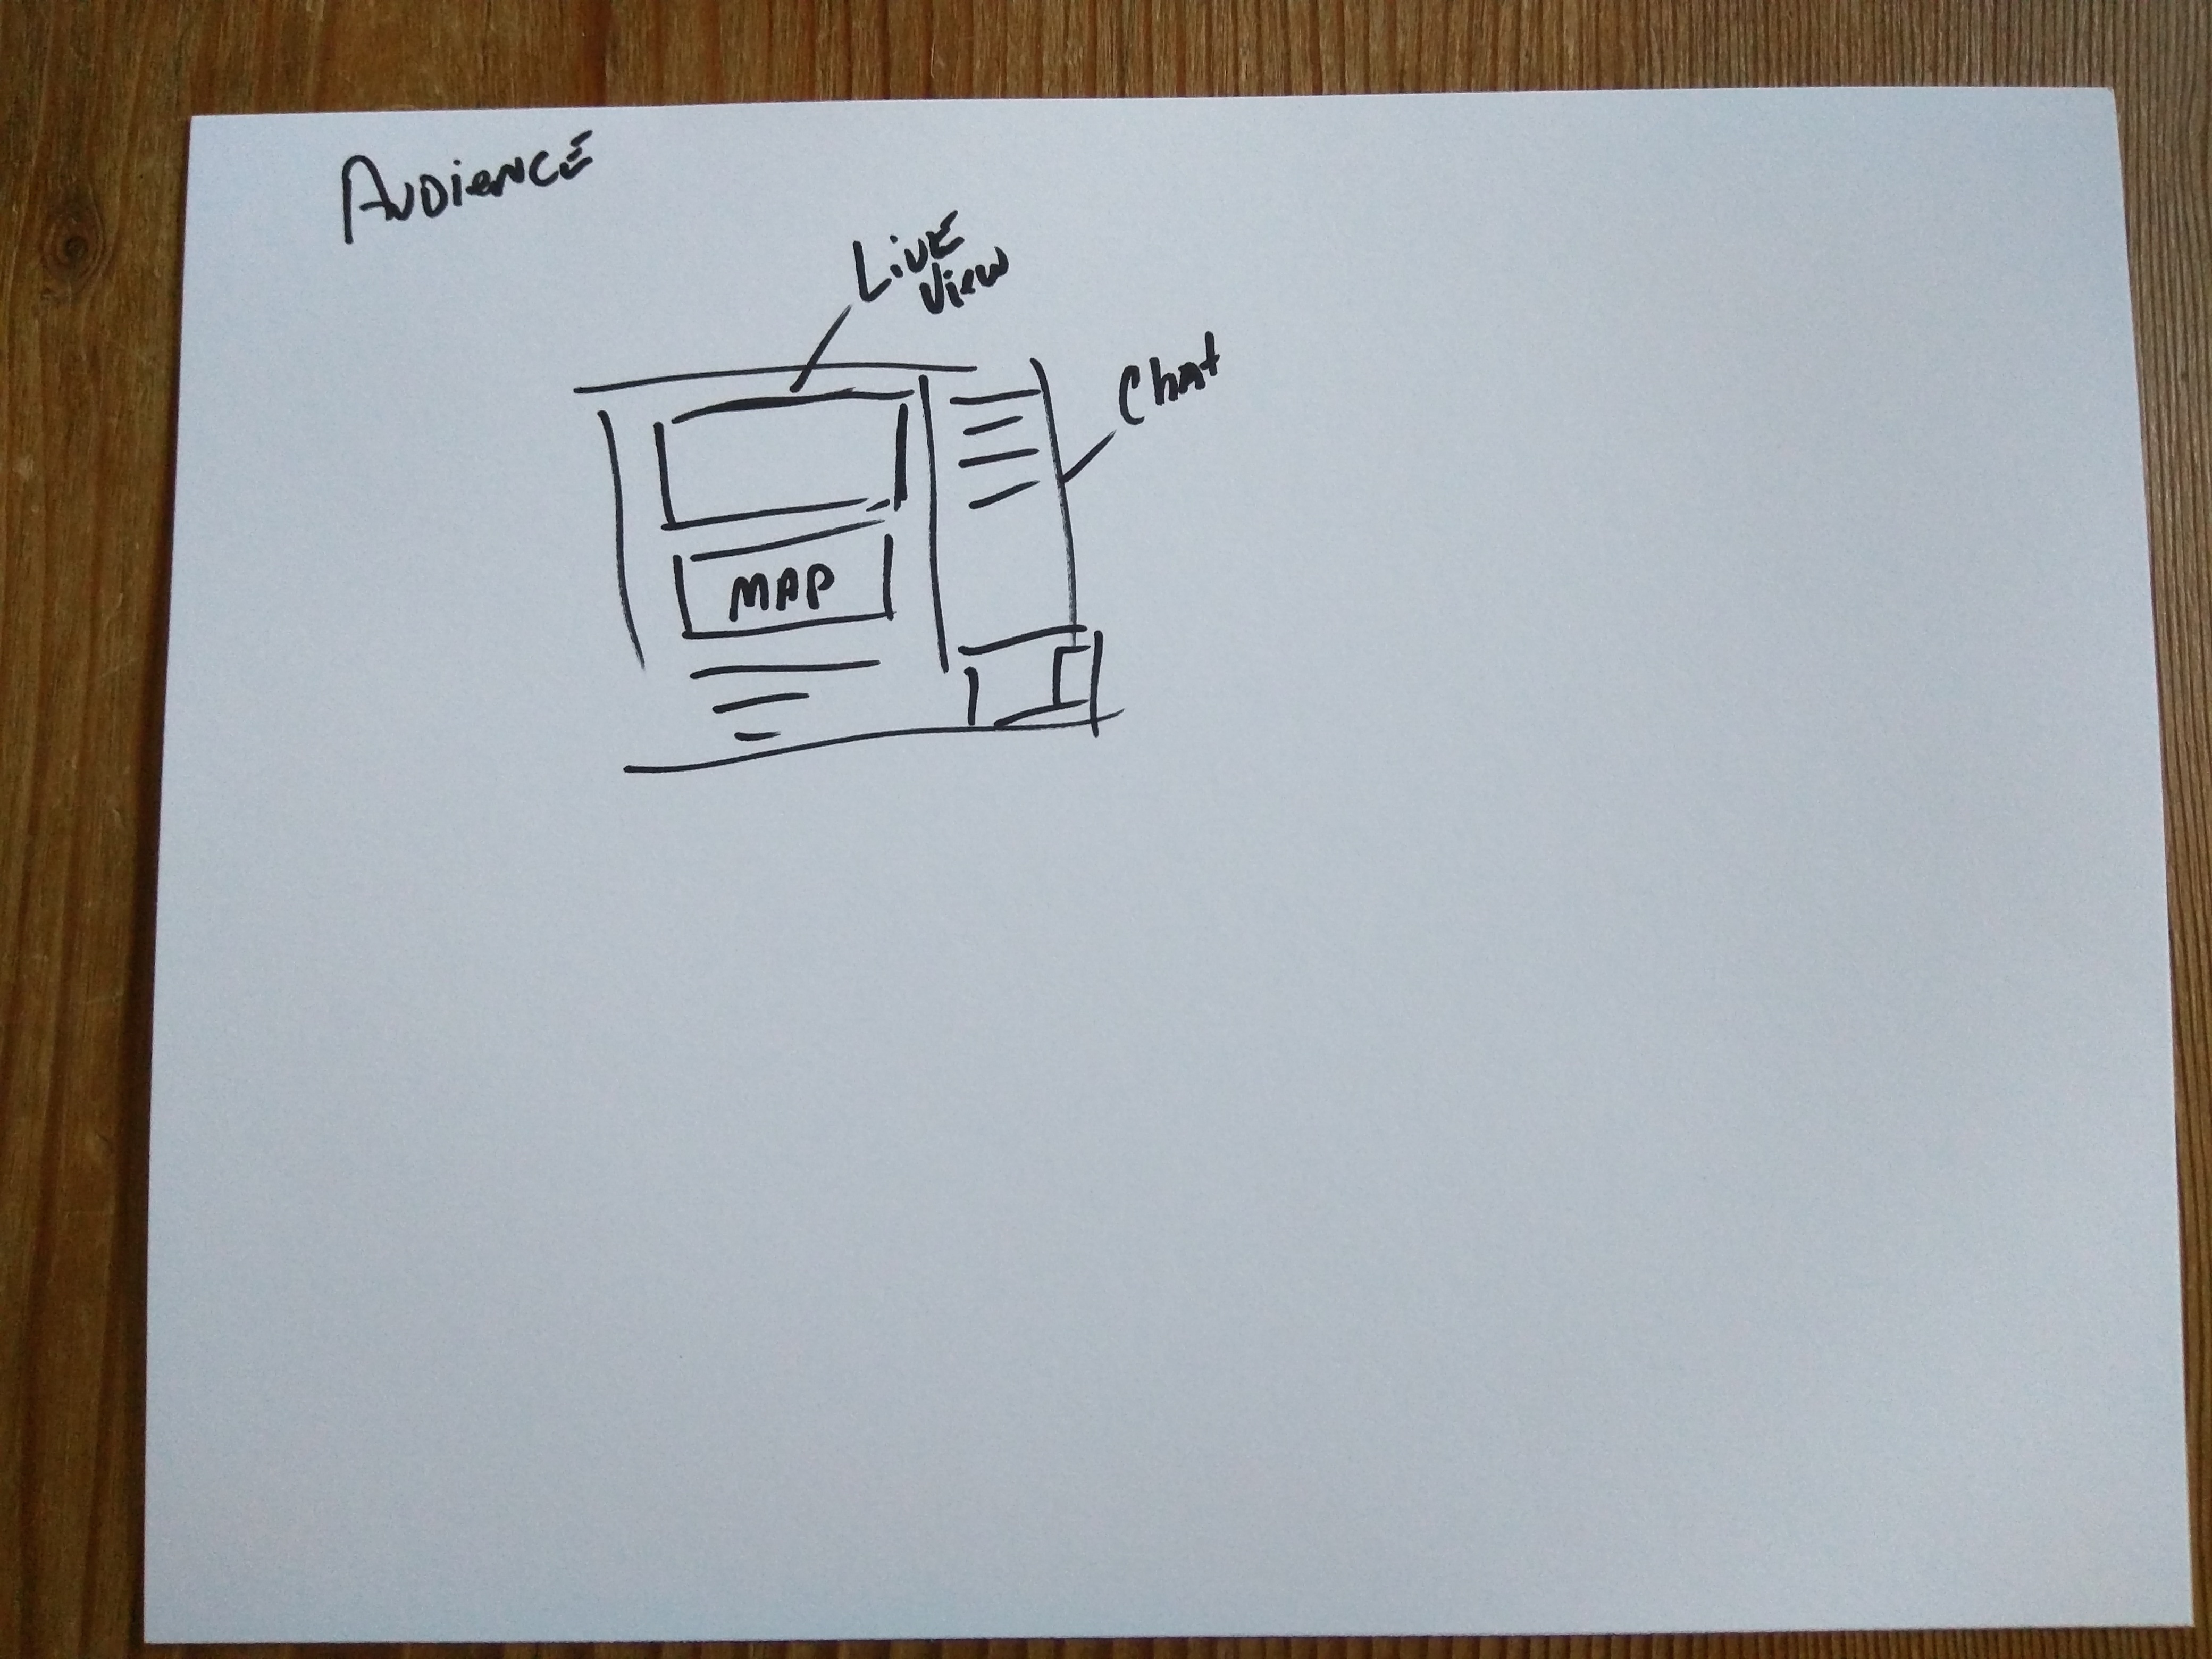 AUDiENCE
LiVE
View
Chat
MAP